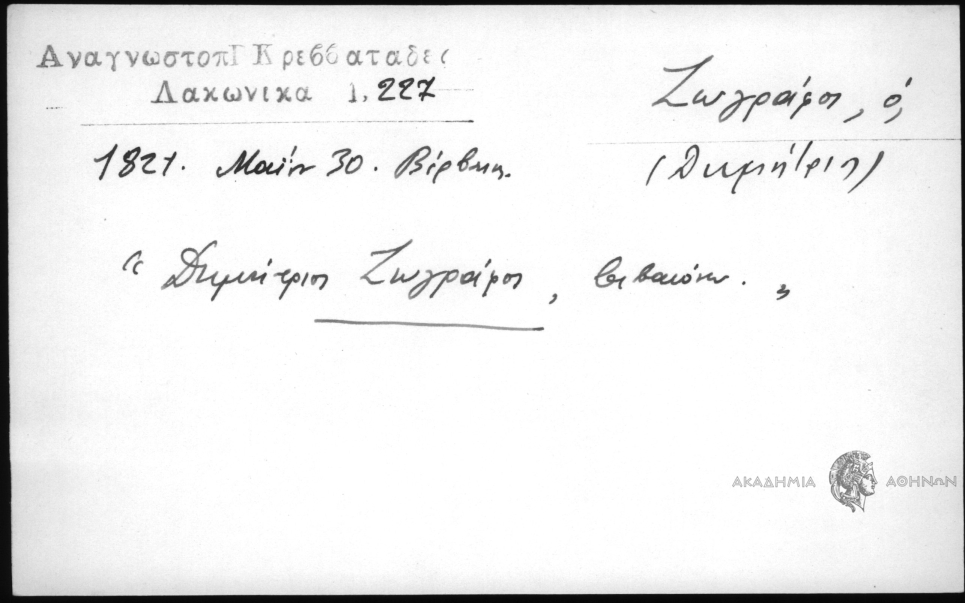 ΑναγνωστοπΓ Κρεββαταδες
Λακωνικα 1, 227
Ζωγράφος, ὁ,
(Δημήτριος)
1821. Μαΐου 30. Βέρβενα.
“ Δημήτριος Ζωγράφος, βεβαιόνω. „
ΑΚΑΔΗΜΙΑ ΑΘΗΝΩΝ